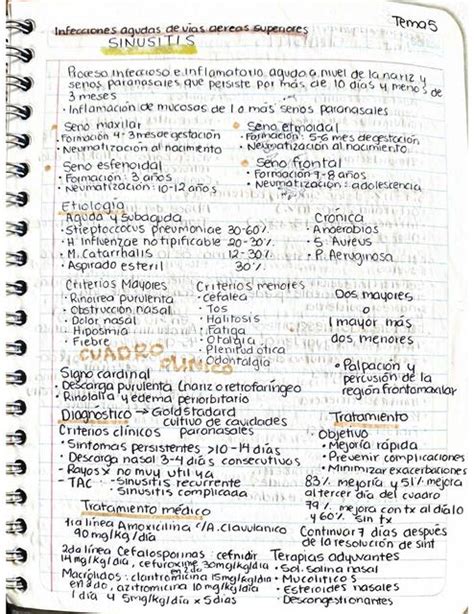 Tema 5
Infecciones agudas de vias aereas superiores
SINUSITIS
Proceso infeccioso e inflamatorio agudo a nivel de la nariz y
senos paranasales que persiste por más de 10 días y menos de
3 meses
· Inflamación de mucosas de 1 o más senos paranasales
Seno maxilar
· Formación 4-3 meses de gestación
· Neumatización al nacimiento
Seno etmoidal
· Formación: 5-6 mes de gestación
· Neumatización al nacimiento
Seno esfenoidal
· Formación: 3 años
· Neumatización: 10-12 años
Seno frontal
· Formación 7-8 años
· Neumatización: adolescencia
Etiología
Aguda y subaguda
· Streptococcus pneumoniae 30-60%
· H Influenzae no tipificable 20-30%
· M. Catarrhalis 12-30%
· Aspirado esteril 30%
Crónica
· Anaerobios
· S. Aureus
· P. Aeruginosa
Criterios Mayores
· Rinorrea purulenta
· Obstrucción nasal
· Dolor nasal
· Hiposmia
· Fiebre
Criterios menores
· Cefalea
· Tos
· Halitosis
· Fatiga
· Otalgia
· Plenitud otica
· Odontalgia
Dos mayores
o
1 mayor más
dos menores
CUADRO CLINICO
Signo cardinal
· Descarga purulenta (nariz o retrofaríngeo
· Rinolalia y edema periorbitario
· Palpación y
percusión de la
región frontomaxilar
Diagnóstico → Gold stadard
cultivo de cavidades
paranasales
Criterios clínicos
· Síntomas persistentes >10-14 días
· Descarga nasal 3-4 días consecutivos
· Rayos x no muy util ya
- TAC - Sinusitis recurrente
- Sinusitis complicada
Tratamiento
· Objetivo
· Mejoría rápida
· Prevenir complicaciones
· Minimizar exacerbaciones
83% mejoría y 51% mejora
al tercer día del cuadro
79% mejora con tx al día 10
y 60% sin tx
Continuar 7 días después
de la resolución de sint
Tratamiento médico
1ra línea Amoxicilina c/A. Clavulanico
90 mg/kg/día
2da línea Cefalosporinas: cefnidir
14 mg/kg/día, cefuroxime 30mg/kg/día
en 2do
Macrólidos: claritromicina 15mg/kg/día
en 2, azitromicina 10 mg/kg/día
1 día y 5mg/kg/día x 5 días
Terapias adyuvantes
· Sol. salina nasal
· Mucoliticos
· Esteroides nasales
· Descongestionantes